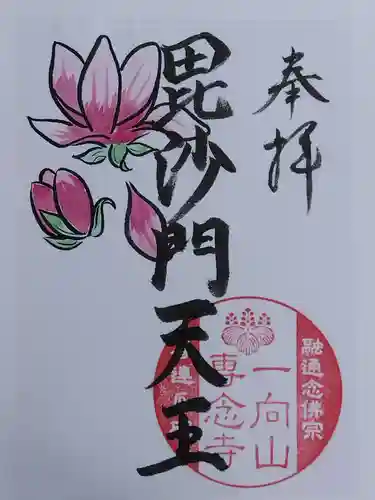 奉拝
毘沙門天王
融通念佛宗
一向山
専念寺